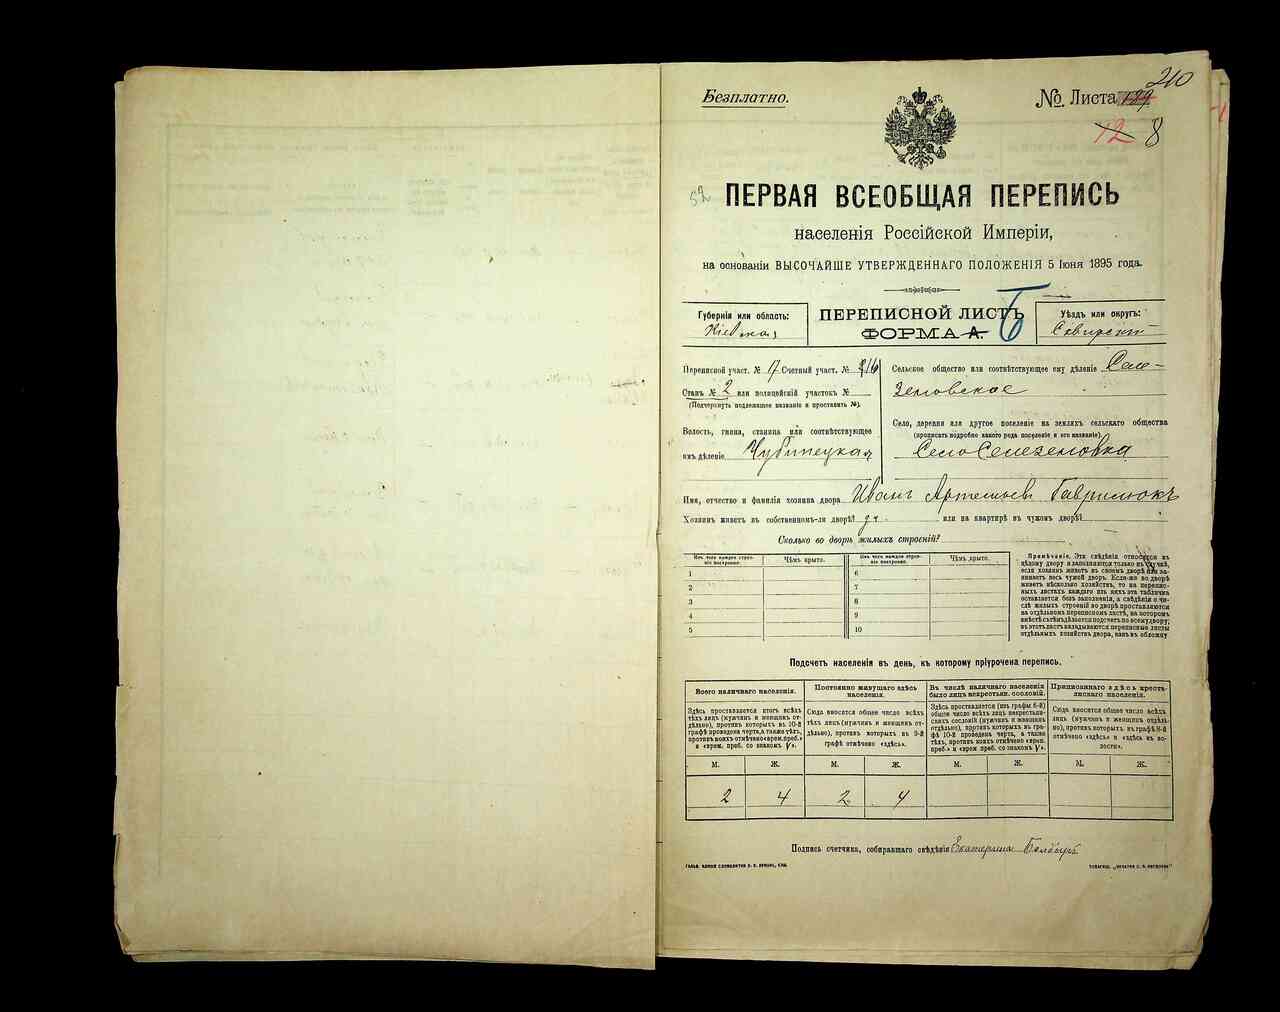 210
Безплатно.
№ Листа 129
12 8
52
ПЕРВАЯ ВСЕОБЩАЯ ПЕРЕПИСЬ
населенія Россійской Имперіи,
на основаніи ВЫСОЧАЙШЕ УТВЕРЖДЕННАГО ПОЛОЖЕНІЯ 5 Іюня 1895 года.
Губернія или область:
Кіевская
ПЕРЕПИСНОЙ ЛИСТЪ
ФОРМА А. Б
Уѣздъ или округъ:
Переписной участ. № 17 Счетный участ. №
Станъ № 2 или полицейскій участокъ №
(Подчеркнуть подлежащее названіе и проставить №).
Волость, гмина, станица или соотвѣтствующее
имъ дѣленіе Чубинецкая
Сельское общество или соотвѣтствующее ему дѣленіе Селе-
зеновское
Село, деревня или другое поселеніе на земляхъ сельскаго общества
(прописать подробно какого рода поселеніе и его названіе).
Село Селезеновка
Имя, отчество и фамилія хозяина двора Иванъ Артемьев Гаврилюкъ
Хозяинъ живетъ въ собственномъ-ли дворѣ? или на квартирѣ въ чужомъ дворѣ?
Сколько во дворѣ жилыхъ строеній?
Изъ чего каждое строе-
ніе построено.
Чѣмъ крыто.
Изъ чего каждое строе-
ніе построено.
Чѣмъ крыто.
1 6
2 7
3 8
4 9
5 10
Примѣчаніе. Эти свѣдѣнія относятся къ
цѣлому двору и заполняются только въ случаѣ,
если хозяинъ живетъ въ своемъ дворѣ или за-
нимаетъ весь чужой дворъ. Если-же во дворѣ
живетъ нѣсколько хозяйствъ, то на перепис-
ныхъ листахъ каждаго изъ нихъ эта табличка
оставляется безъ заполненія, а свѣдѣнія о чи-
слѣ жилыхъ строеній во дворѣ проставляются
на отдѣльномъ переписномъ листѣ, на которомъ
вмѣстѣ съ тѣмъ дѣлается подсчетъ по всему двору;
въ этотъ листъ вкладываются переписные листы
отдѣльныхъ хозяйствъ двора, какъ въ обложку
Подсчетъ населенія въ день, къ которому пріурочена перепись.
Всего наличнаго населенія.
Здѣсь проставляется итогъ всѣхъ
тѣхъ лицъ (мужчинъ и женщинъ от-
дѣльно), противъ которыхъ въ 10-й
графѣ проведена черта, а также тѣхъ,
противъ коихъ отмѣчено «врем. преб.»
и «врем. преб. со знакомъ V».
Постоянно живущаго здѣсь
населенія.
Сюда вносится общее число всѣхъ
тѣхъ лицъ (мужчинъ и женщинъ от-
дѣльно), противъ которыхъ въ 9-й
графѣ отмѣчено «здѣсь».
Въ числѣ наличнаго населенія
было лицъ некрестьян. сословій.
Здѣсь проставляется (изъ графы 6-й)
общее число всѣхъ лицъ некрестьян-
скихъ сословій (мужчинъ и женщинъ
отдѣльно), противъ которыхъ въ гра-
фѣ 10-й проведена черта, а также
тѣхъ, противъ коихъ отмѣчено «врем.
преб.» и «врем преб. со знакомъ V».
Приписаннаго здѣсь кресть-
янскаго населенія.
Сюда вносится общее число всѣхъ
лицъ (мужчинъ и женщинъ отдѣль-
но), противъ которыхъ въ графѣ 8-й
отмѣчено «здѣсь» и «здѣсь въ во-
лости».
М. Ж. М. Ж. М. Ж. М. Ж.
2 4 2 4
Подпись счетчика, собиравшаго свѣдѣнія Екатерина